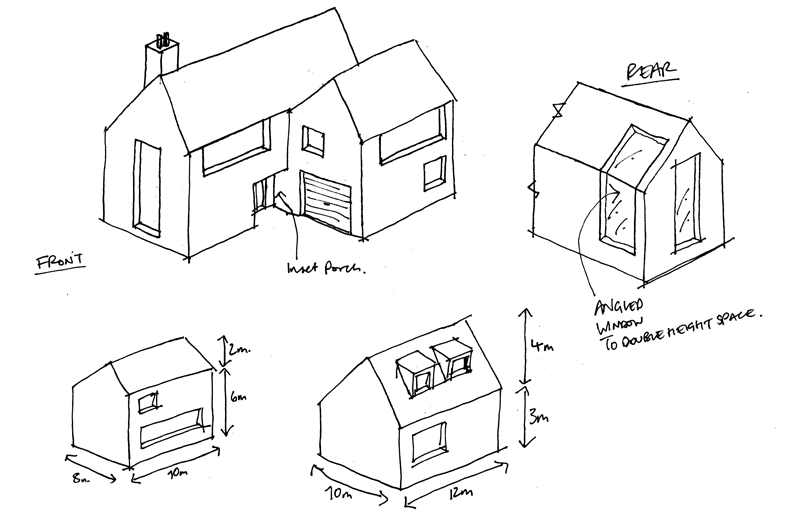 REAR
FRONT
Inset Porch.
ANGLED
WINDOW
TO DOUBLE HEIGHT SPACE.
2m.
6m
8m
10m
4m
3m
10m
12m